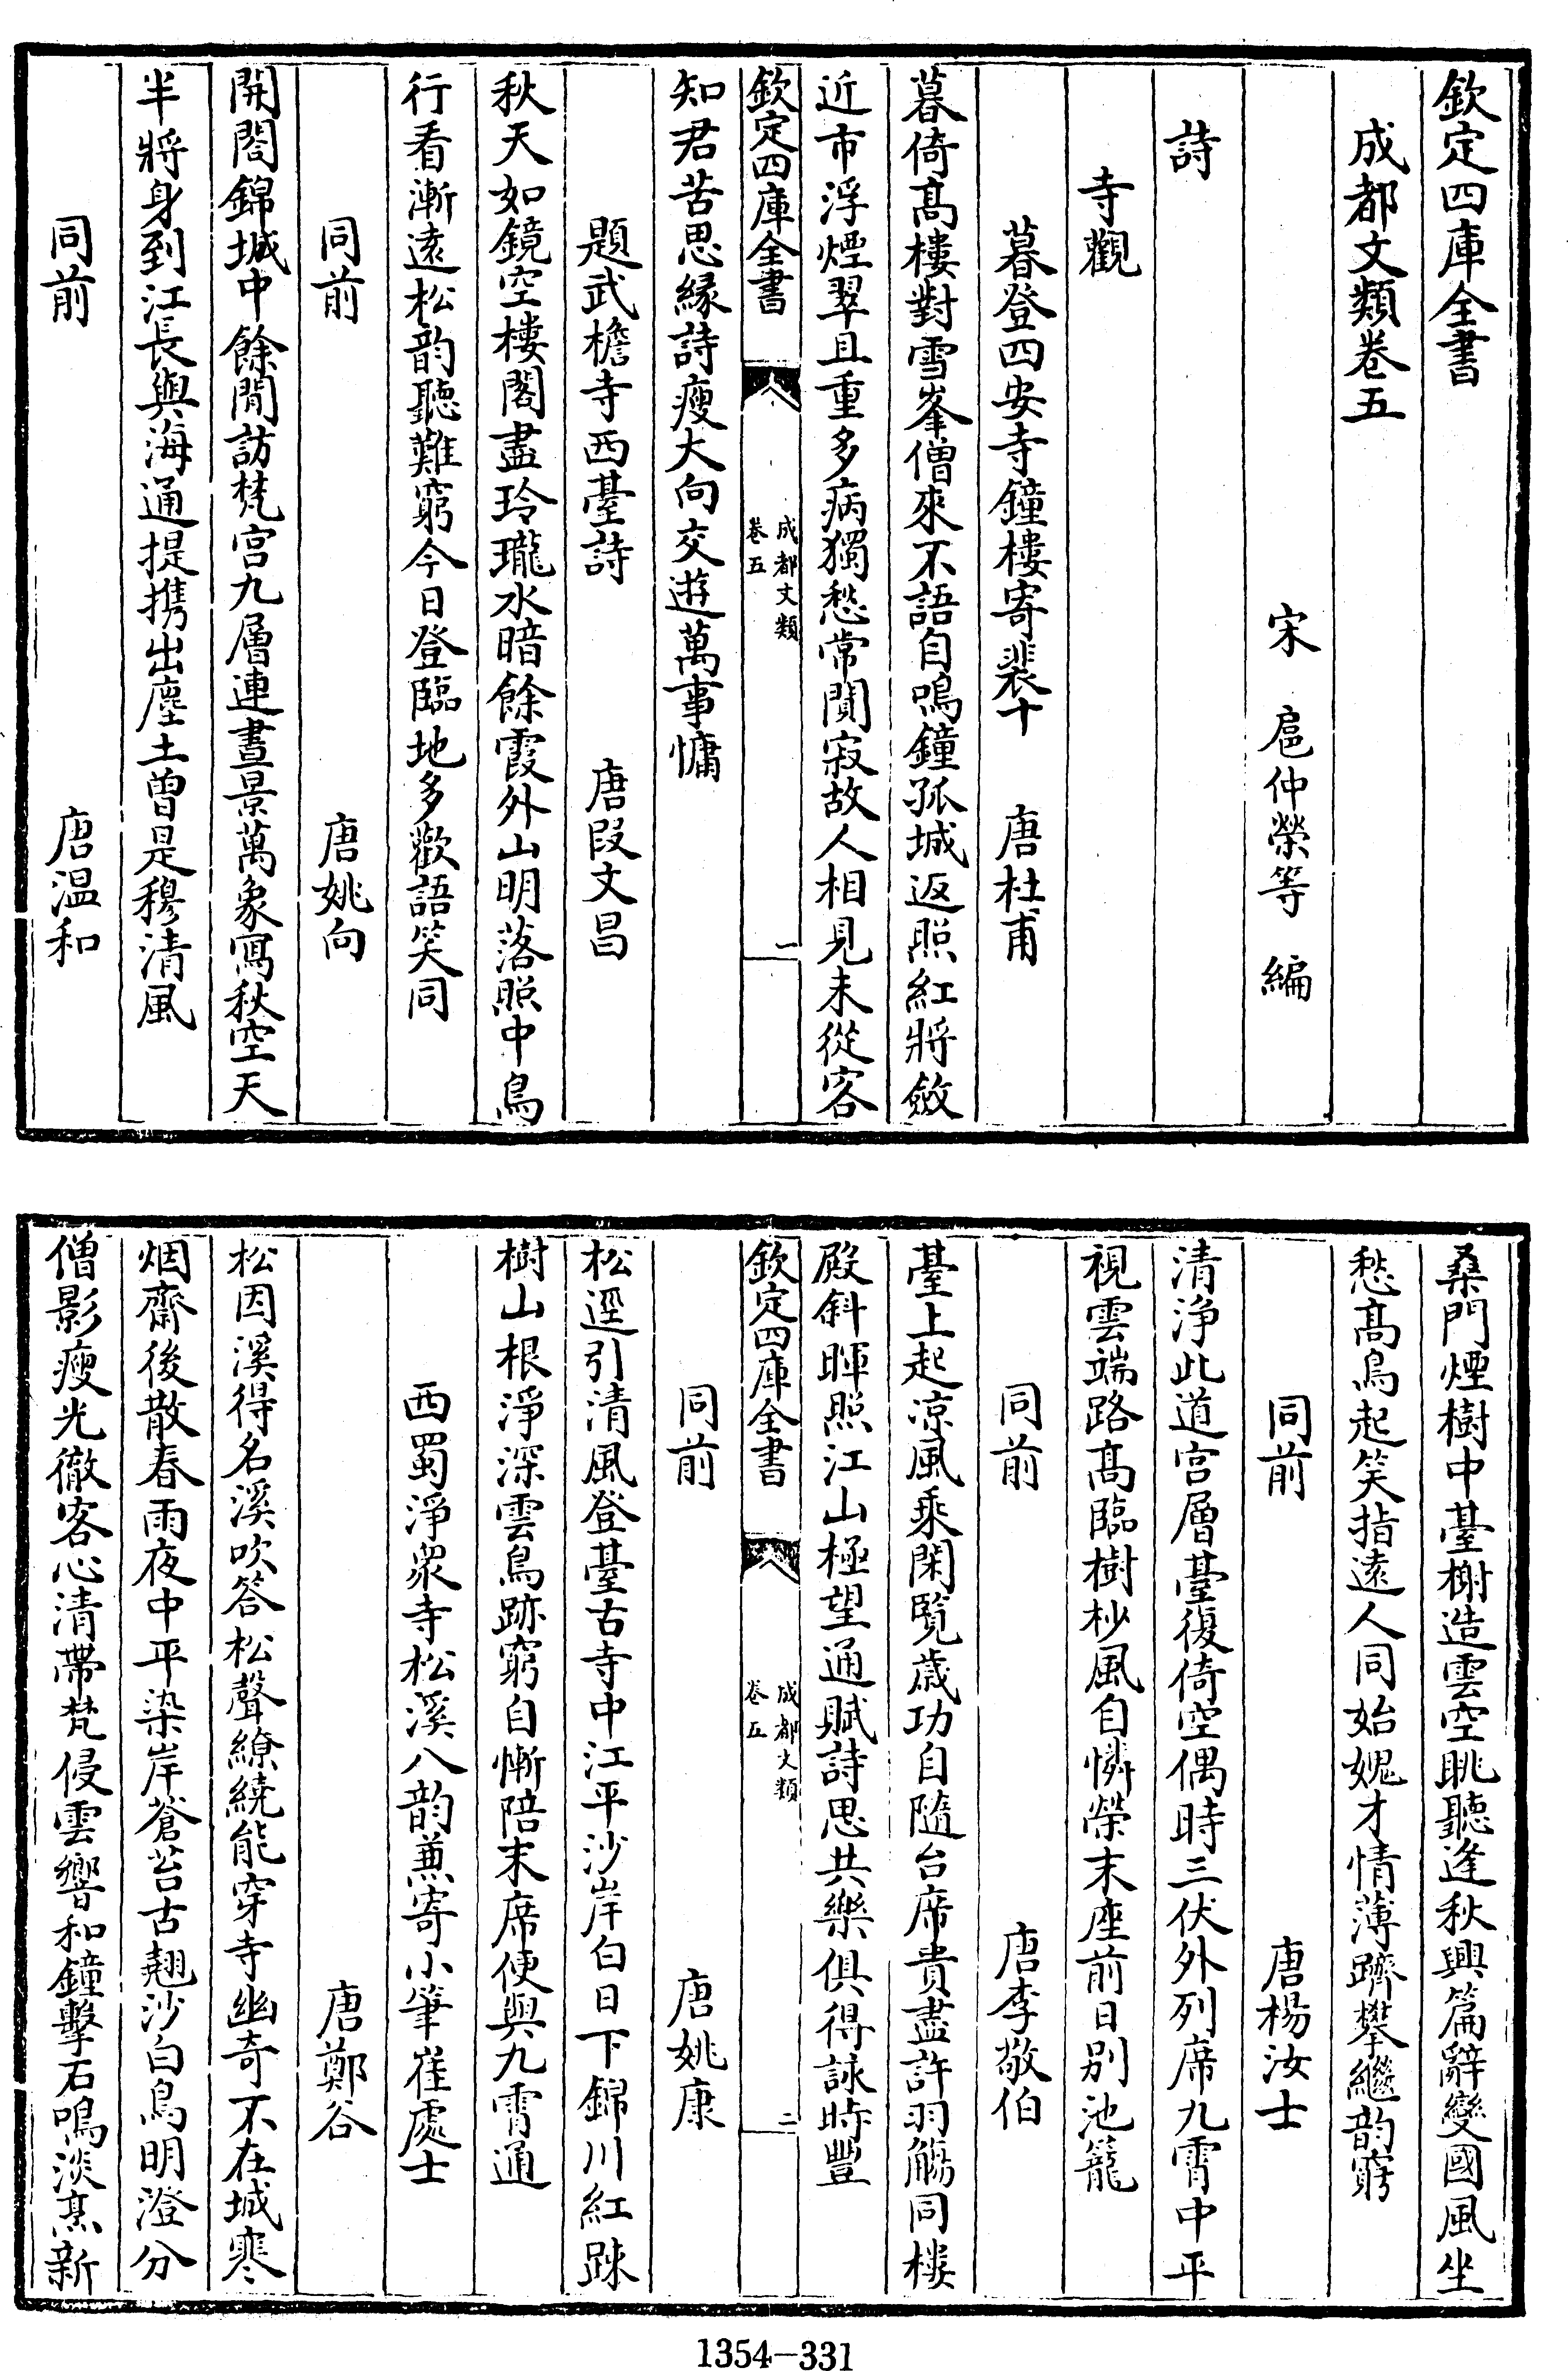 欽定四庫全書
成都文類卷五
宋 扈仲榮等 編
詩
寺觀
暮登四安寺鐘樓寄裴十 唐杜甫
暮倚髙樓對雪峯僧來不語自鳴鐘孤城返照紅將斂
近市浮煙翠且重多病獨愁常闃寂故人相見未從容
欽定四庫全書
成都文類
卷五
一
知君苦思緣詩瘦大向交遊萬事慵
題武檐寺西臺詩 唐叚文昌
秋天如鏡空樓閣盡玲瓏水暗餘霞外山明落照中鳥
行看漸遠松韵聽難窮今日登臨地多歡語笑同
同前 唐姚向
開閤錦城中餘閒訪梵宫九層連晝景萬象寫秋空天
半將身到江長與海通提携出塵土曽是穆清風
同前 唐温和
桑門煙樹中臺榭造雲空眺聽逢秋興篇辭變國風坐
愁髙鳥起笑指遠人同始媿才情薄躋攀繼韵窮
同前 唐楊汝士
清浄此道宫層臺復倚空偶時三伏外列席九霄中平
視雲端路髙臨樹杪風自憐榮末座前日别池籠
同前 唐李敬伯
臺上起凉風乘閑覧歳功自隨台席貴盡許羽觴同樓
殿斜暉照江山極望通賦詩思共樂俱得詠時豐
欽定四庫全書
成都文類
卷五
二
同前 唐姚康
松逕引清風登臺古寺中江平沙岸白日下錦川紅疎
樹山根淨深雲鳥跡窮自慚陪末席便與九霄通
西蜀淨衆寺松溪八韵兼寄小筆崔處士
唐鄭谷
松因溪得名溪吹答松聲繚繞能穿寺幽奇不在城寒
烟齋後散春雨夜中平染岸蒼苔古翹沙白鳥明澄分
僧影瘦光徹客心清帶梵侵雲響和鐘擊石鳴淡烹新
1354-331